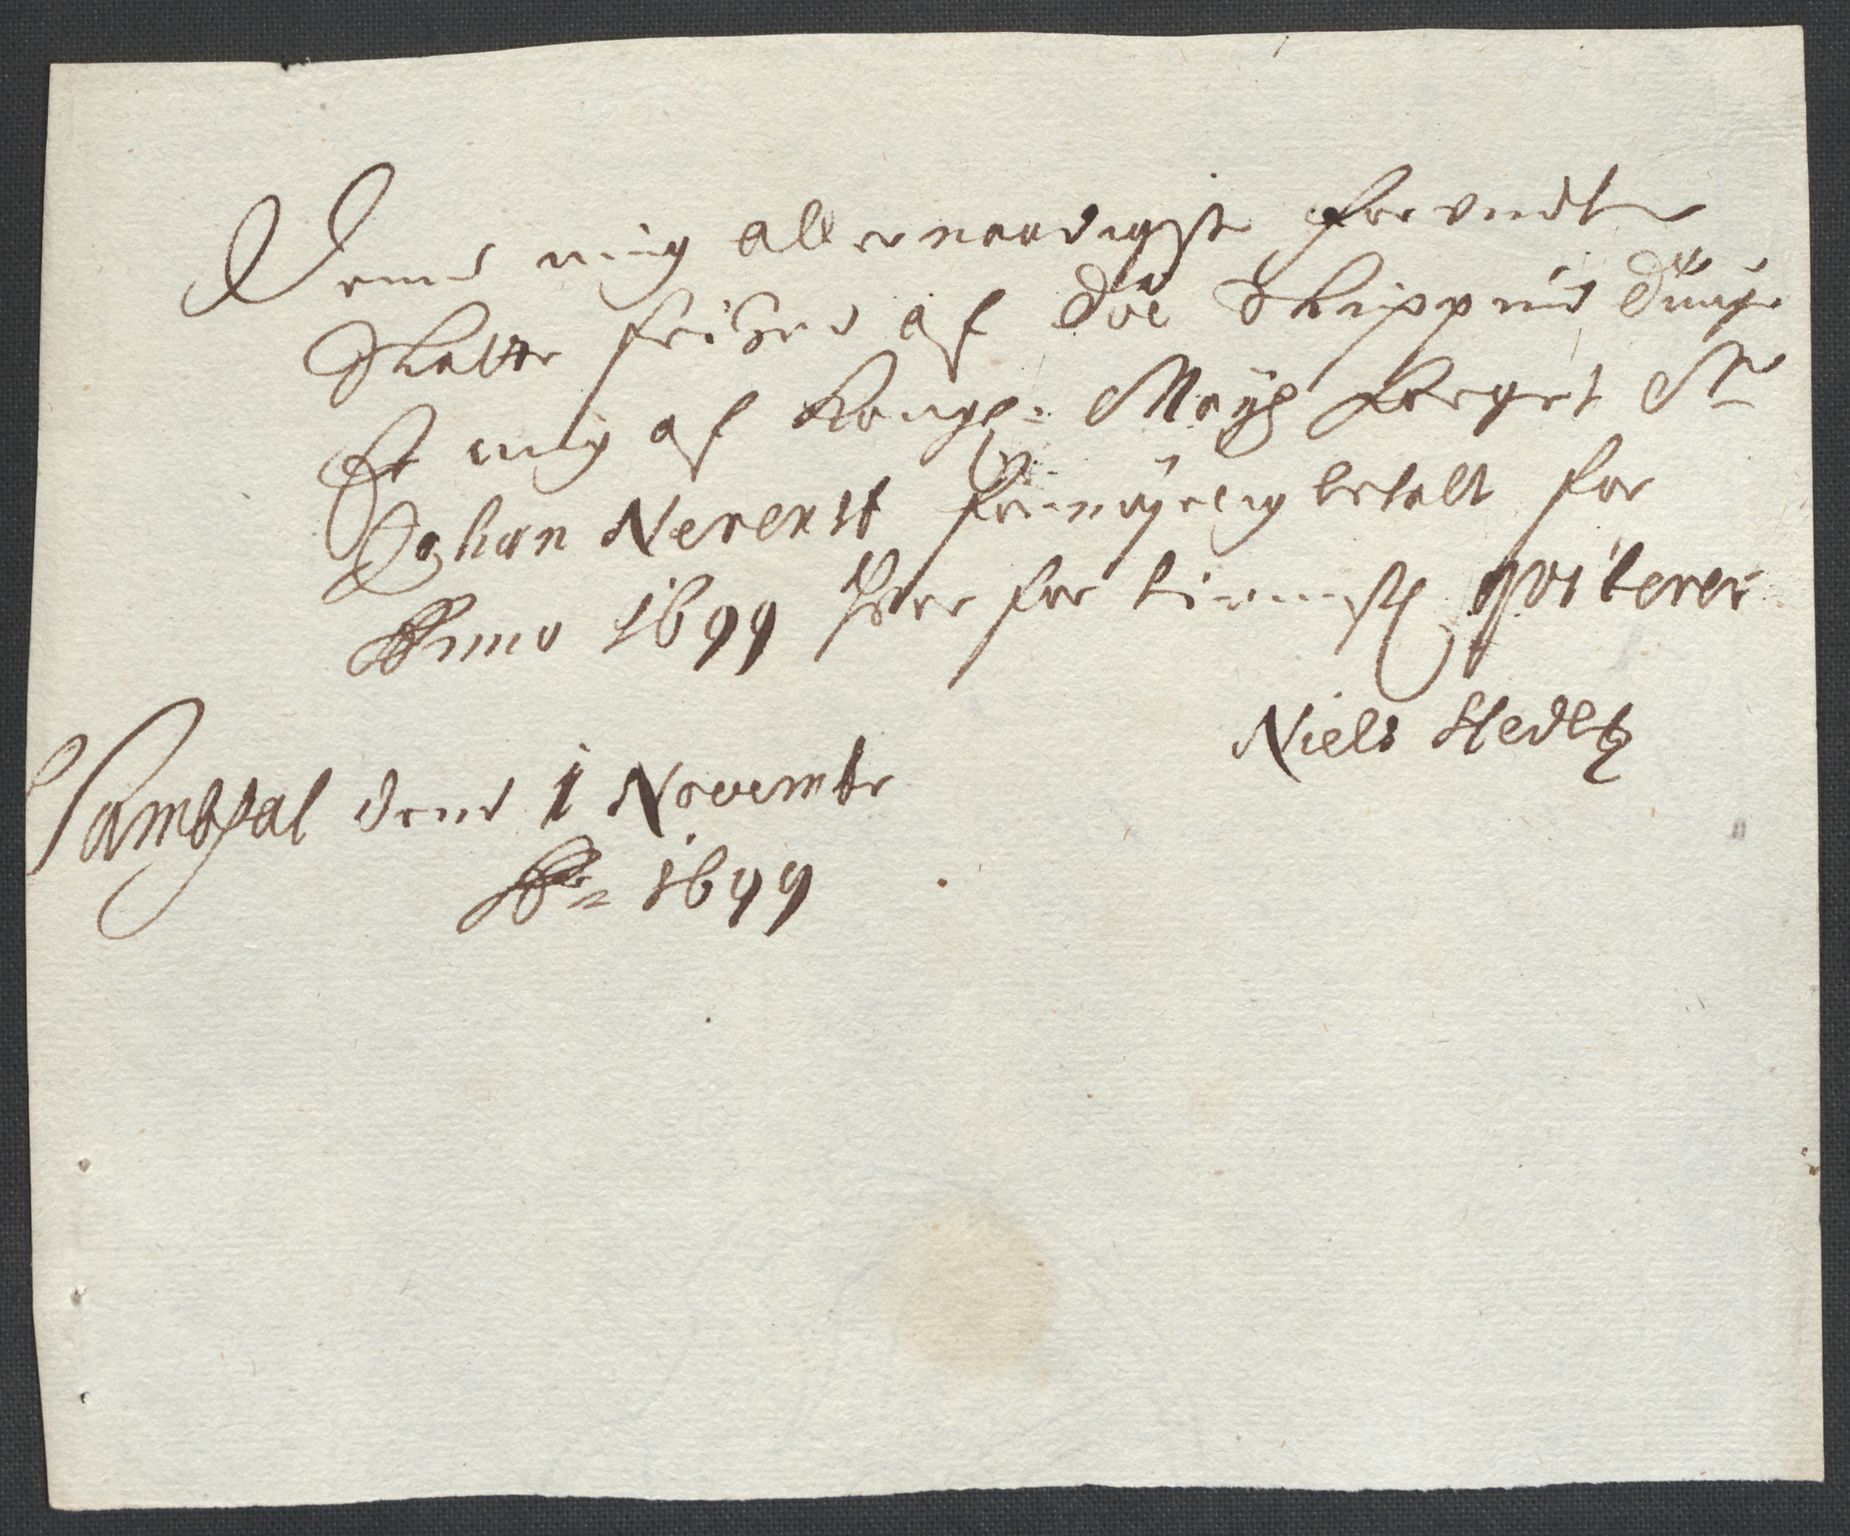 Dend mig allernaadigst forundte
Skatte friihed af Toe Skippund Tunge
Er mig af Kongl: Mayts Foeget Sr
Johan Nerenst fornøyelig betalt for
Anno 1699 Hvor for tienistl qviterer
Niels Hedltz
Sambsal dend 1 Novembr
Ao 1699